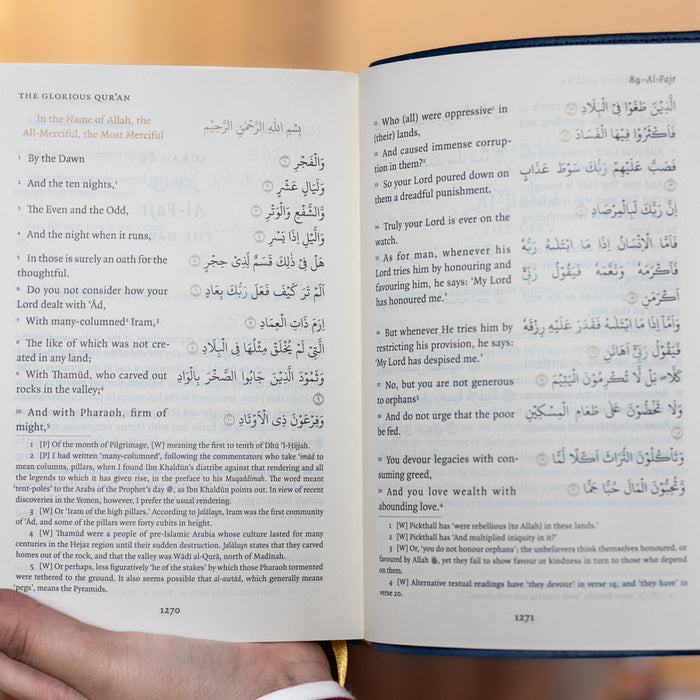 THE GLORIOUS QUR'AN
In the Name of Allah, the
All-Merciful, the Most Merciful
بِسْمِ اللهِ الرَّحْمٰنِ الرَّحِيْمِ
1 By the Dawn
وَالْفَجْرِ ۝١
2 And the ten nights,¹
وَلَيَالٍ عَشْرٍ ۝٢
3 The Even and the Odd,
وَّالشَّفْعِ وَالْوَتْرِ ۝٣
4 And the night when it runs,
وَالَّيْلِ اِذَا يَسْرِ ۝٤
5 In those is surely an oath for the
thoughtful.
هَلْ فِيْ ذٰلِكَ قَسَمٌ لِّذِيْ حِجْرٍ ۝٥
6 Do you not consider how your
Lord dealt with 'Ād,
اَلَمْ تَرَ كَيْفَ فَعَلَ رَبُّكَ بِعَادٍ ۝٦
7 With many-columned² Iram,³
اِرَمَ ذَاتِ الْعِمَادِ ۝٧
8 The like of which was not cre-
ated in any land;
الَّتِيْ لَمْ يُخْلَقْ مِثْلُهَا فِي الْبِلَادِ ۝٨
9 With Thamūd, who carved out
rocks in the valley;⁴
وَثَمُوْدَ الَّذِيْنَ جَابُوا الصَّخْرَ بِالْوَادِ
۝٩
10 And with Pharaoh, firm of
might,⁵
وَفِرْعَوْنَ ذِي الْاَوْتَادِ ۝١٠
1 [P] Of the month of Pilgrimage, [W] meaning the first to tenth of Dhū 'l-Ḥijjah.
2 [P] I had written 'many-columned', following the commentators who take 'imād to
mean columns, pillars, when I found Ibn Khaldūn's diatribe against that rendering and all
the legends to which it has given rise, in the preface to his Muqaddimah. The word meant
'tent-poles' to the Arabs of the Prophet's day ﷺ, as Ibn Khaldūn points out. In view of recent
discoveries in the Yemen, however, I prefer the usual rendering.
3 [W] Or 'Iram of the high pillars.' According to Jalālayn, Iram was the first community
of 'Ād, and some of the pillars were forty cubits in height.
4 [W] Thamūd were a people of pre-Islamic Arabia whose culture lasted for many
centuries in the Hejaz region until their sudden destruction. Jalālayn states that they carved
homes out of the rock, and that the valley was Wādi al-Qurā, north of Madinah.
5 [W] Or perhaps, less figuratively 'he of the stakes' by which those Pharaoh tormented
were tethered to the ground. It also seems possible that al-awtād, which generally means
'pegs', means the Pyramids.
1270
89–Al-Fajr
11 Who (all) were oppressive¹ in
(their) lands,
الَّذِيْنَ طَغَوْا فِي الْبِلَادِ ۝١١
12 And caused immense corrup-
tion in them?²
فَاَكْثَرُوْا فِيْهَا الْفَسَادَ ۝١٢
13 So your Lord poured down on
them a dreadful punishment.
فَصَبَّ عَلَيْهِمْ رَبُّكَ سَوْطَ عَذَابٍ
۝١٣
14 Truly your Lord is ever on the
watch.
اِنَّ رَبَّكَ لَبِالْمِرْصَادِ ۝١٤
15 As for man, whenever his
Lord tries him by honouring and
favouring him, he says: 'My Lord
has honoured me.'
فَاَمَّا الْاِنْسَانُ اِذَا مَا ابْتَلٰىهُ رَبُّهٗ
فَاَكْرَمَهٗ وَنَعَّمَهٗ فَيَقُوْلُ رَبِّيْ
اَكْرَمَنِ ۝١٥
16 But whenever He tries him by
restricting his provision, he says:
'My Lord has despised me.'
وَاَمَّا اِذَا مَا ابْتَلٰىهُ فَقَدَرَ عَلَيْهِ رِزْقَهٗ
فَيَقُوْلُ رَبِّيْ اَهَانَنِ ۝١٦
17 No, but you are not generous
to orphans³
كَلَّا بَلْ لَّا تُكْرِمُوْنَ الْيَتِيْمَ ۝١٧
18 And do not urge that the poor
be fed.
وَلَا تَحٰٓضُّوْنَ عَلٰى طَعَامِ الْمِسْكِيْنِ
۝١٨
19 You devour legacies with con-
suming greed,
وَتَاْكُلُوْنَ التُّرَاثَ اَكْلًا لَّمًّا ۝١٩
20 And you love wealth with
abounding love.⁴
وَّتُحِبُّوْنَ الْمَالَ حُبًّا جَمًّا ۝٢٠
1 [W] Pickthall has 'were rebellious (to Allah) in these lands.'
2 [W] Pickthall has 'And multiplied iniquity in it?'
3 [W] Or, 'you do not honour orphans'; the unbelievers think themselves honoured, or
favoured by Allah ﷻ, yet they fail to show favour or kindness in turn to those who depend
on them.
4 [W] Alternative textual readings have 'they devour' in verse 19, and 'they have' in
verse 20.
1271